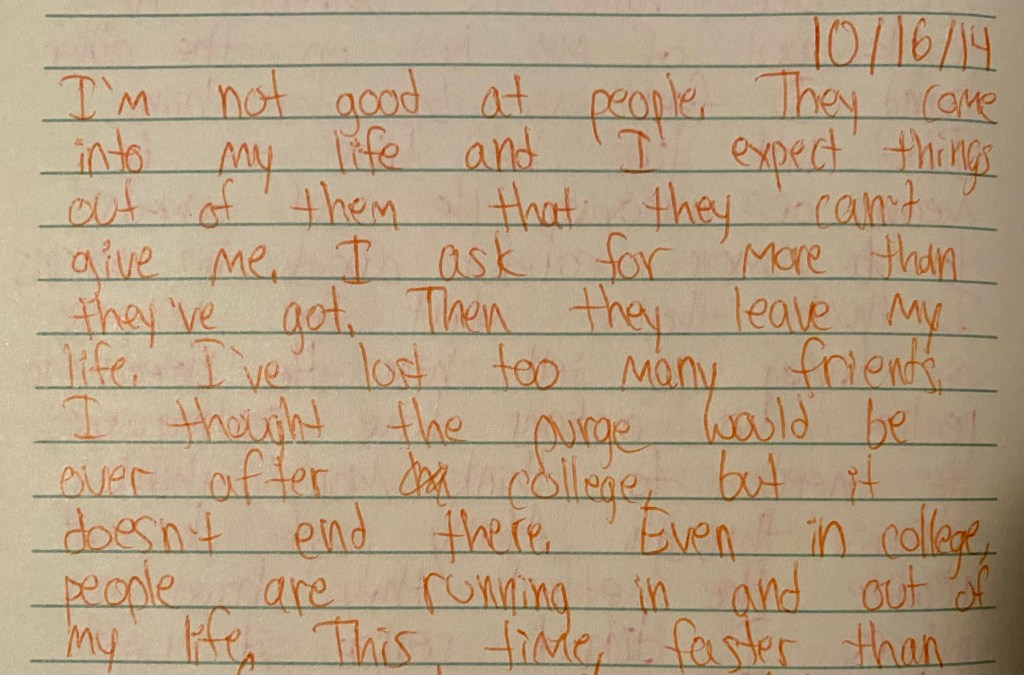 10/16/14
I'm not good at people. They come
into my life and I expect things
out of them that they can't
give me. I ask for more than
they've got. Then they leave my
life. I've lost too many friends.
I thought the purge would be
over after college, but it
doesn't end there. Even in college,
people are running in and out of
my life. This time, faster than